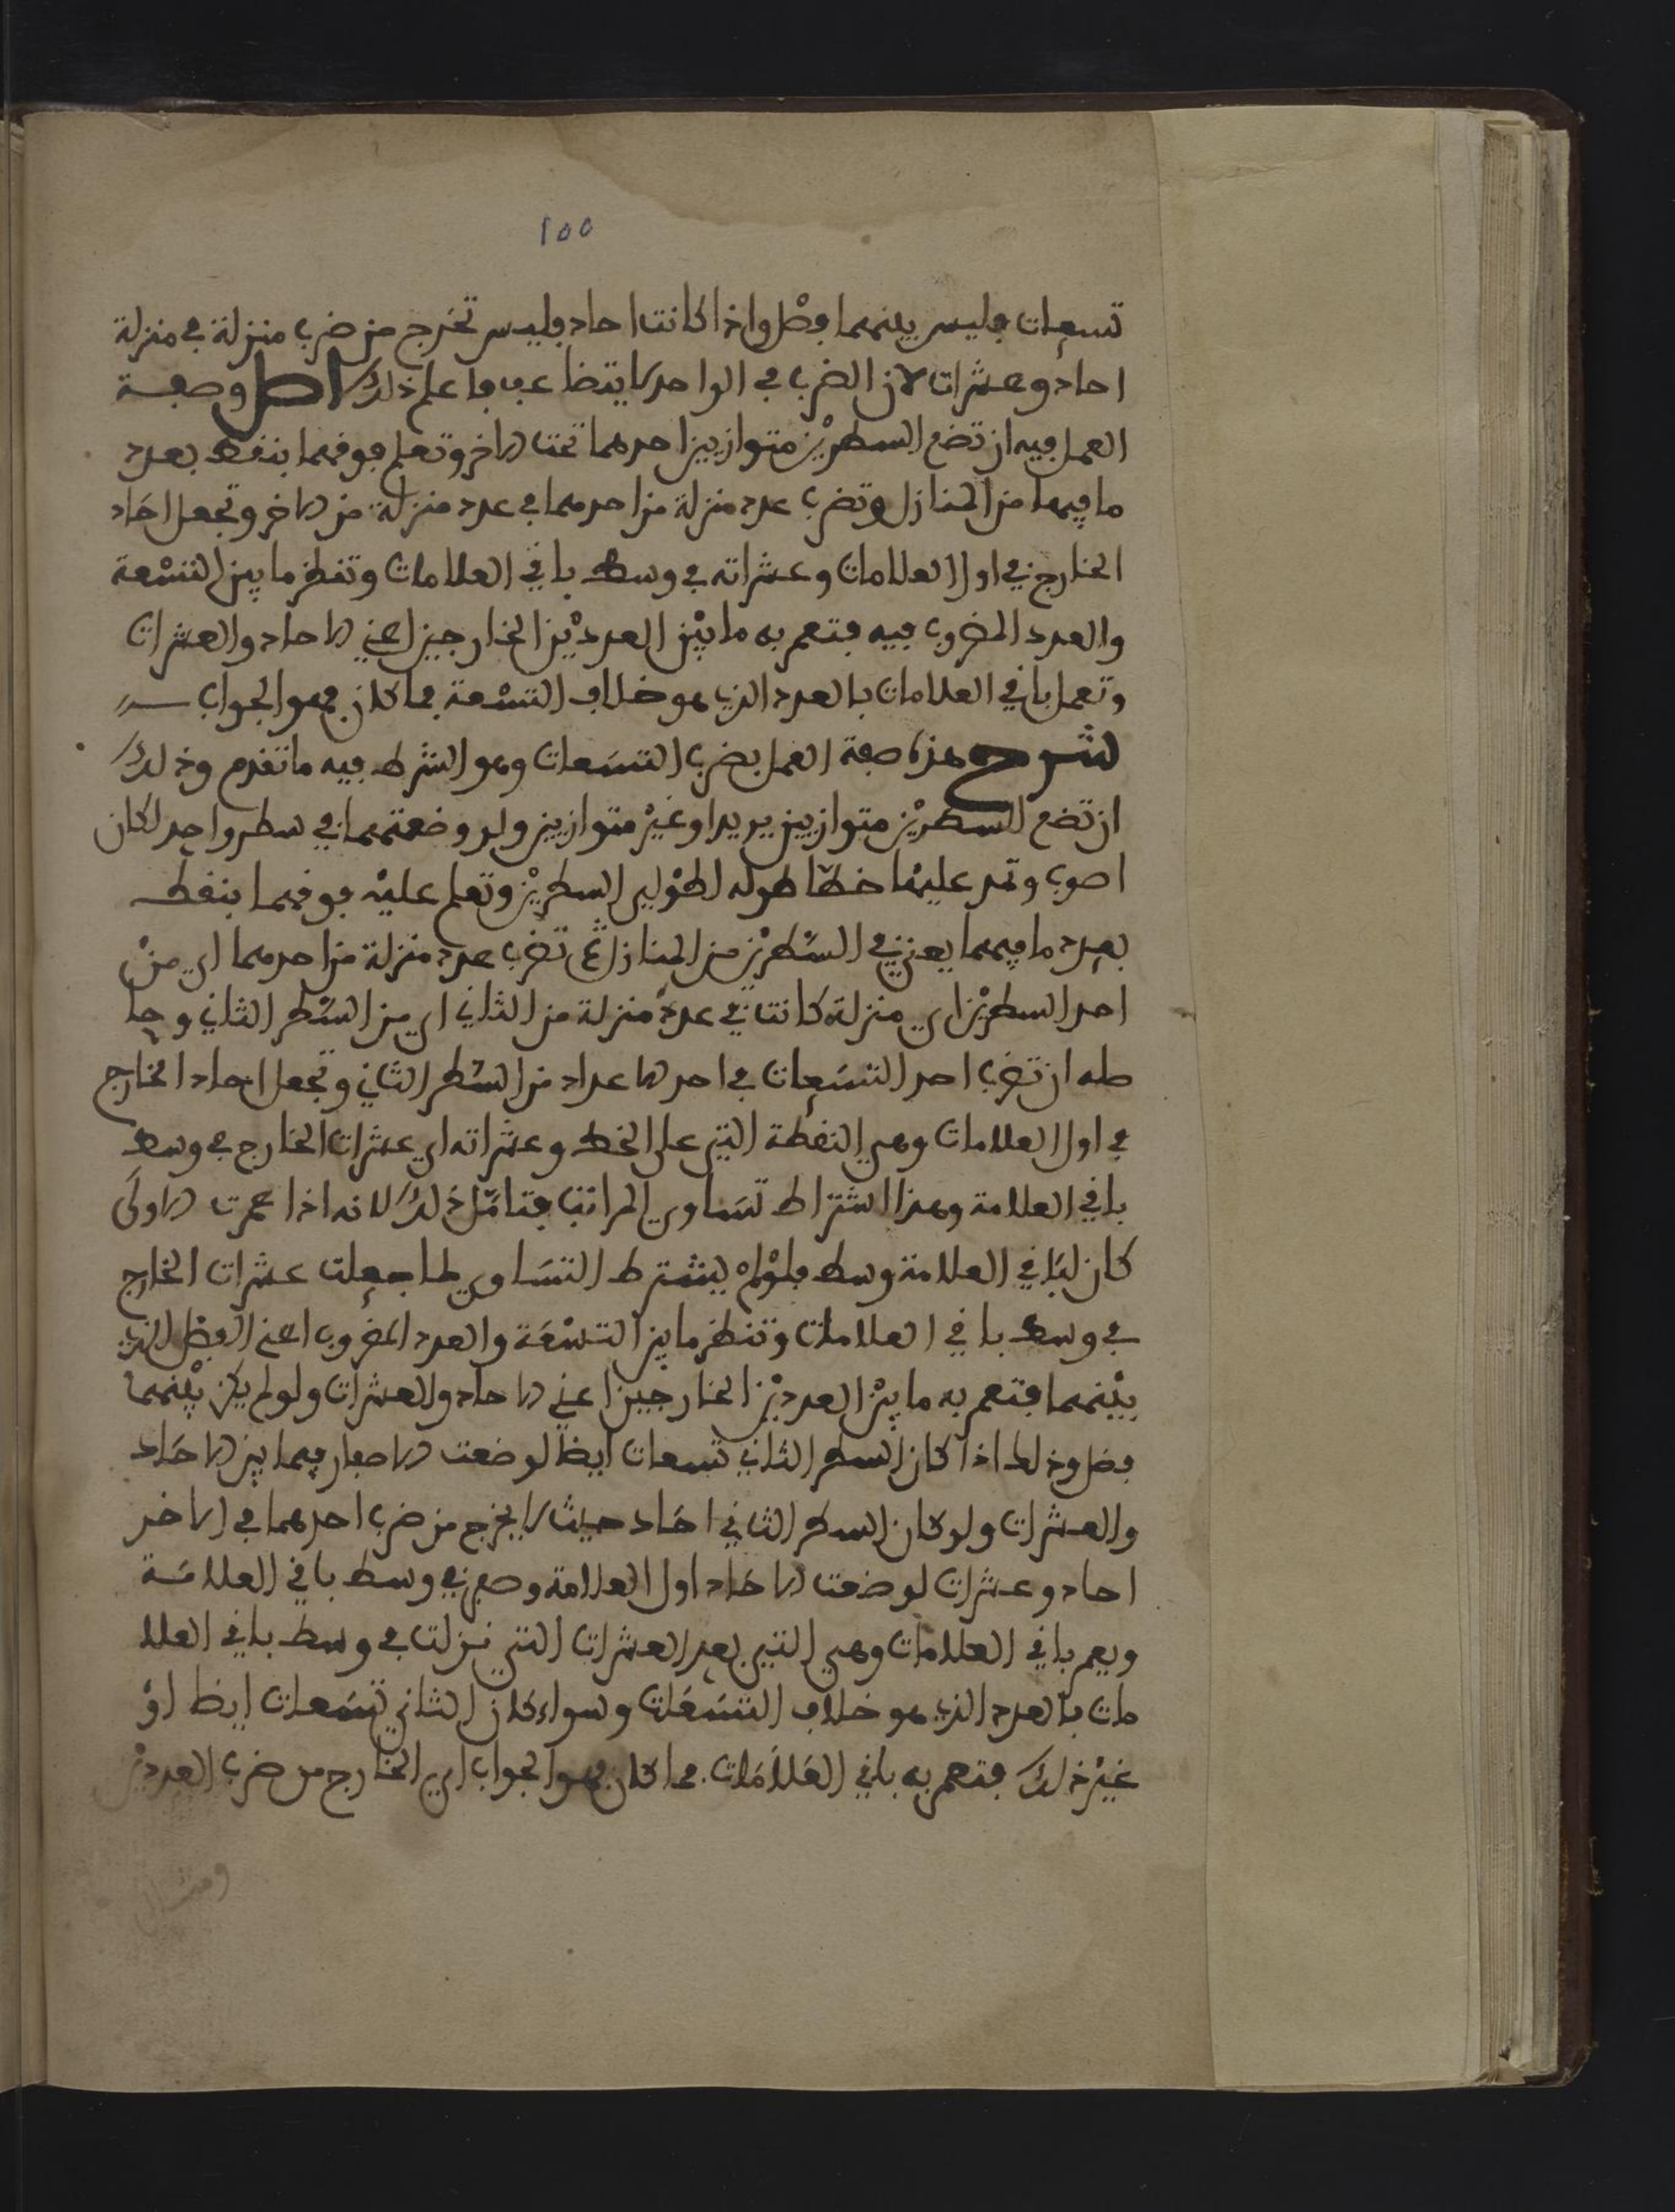 ١٥٥
تسعات فليس بينهما فضل واذا كانت احاد فليس تخرج من ضرب منزلة في منزلة
احاد وعشرات لان الضرب في الواحد لا يتضاعف فاعلم ذلك اصل وصفة
العمل فيه ان تضع السطرين متوازيين احدهما تحت الاخر وتعلم فوقهما بنقط بعدد
ما فيهما من المنازل وتضرب عدد منزلة من احدهما في عدد منزلة من الاخر وتجعل احاد
الخارج في اول العلامات وعشراته في وسط باقي العلامات وتنظر ما بين التسعة
والعدد المضروب فيه فتعمر به ما بين العددين الخارجين اعني الاحاد والعشرات
وتعمل باقي العلامات بالعدد الذي هو خلاف التسعة فما كان فهو الجواب
شرح هذه صفة العمل بضرب التسعات وهو الشرط فيه ما تقدم وذلك
ان تضع السطرين متوازيين يريد او غير متوازيين ولو وضعتهما في سطر واحد لكان
اصوب وتمد عليها خطا طوله لطول السطرين وتعلم عليه فوقهما بنقط
بعدد ما فيهما يعني في السطرين من المنازل ثم تضرب عدد منزلة من احدهما اي من
احد السطرين اي منزلة كانت في عدد منزلة من الثاني اي من السطر الثاني وحا
صله ان تضرب احد التسعات في احد الاعداد من السطر الثاني وتجعل احاد الخارج
في اول العلامات وهي النقطة التي على الخط وعشراته اي عشرات الخارج في وسط
باقي العلامة وهذا اشتراط تساوي المراتب فتامل ذلك لانه اذا عمرت الاولى
كان لباقي العلامة وسط فلو لم يشترط التساوي لما جعلت عشرات الخارج
في وسط باقي العلامات وتنظر ما بين التسعة والعدد المضروب اعني الفضل الذي
بينهما فتعمر به ما بين العددين الخارجين اعني الاحاد والعشرات ولو لم يكن بينهما
فضل وذلك اذا كان السطر الثاني تسعات ايضا لوضعت الاصفار فيما بين الاحاد
والعشرات ولو كان السطر الثاني احاد حيث لا يخرج من ضرب احدهما في الاخر
احاد وعشرات لوضعت الاحاد اول العلامة وصفر في وسط باقي العلامة
ويعمر باقي العلامات وهي التي بعد العشرات التي نزلت في وسط باقي العلا
مات بالعدد الذي هو خلاف التسعات وسواء كان الثاني تسعات ايضا او
غير ذلك فتعمر به باقي العلامات فما كان فهو الجواب اي الخارج من ضرب العددين
ومثال